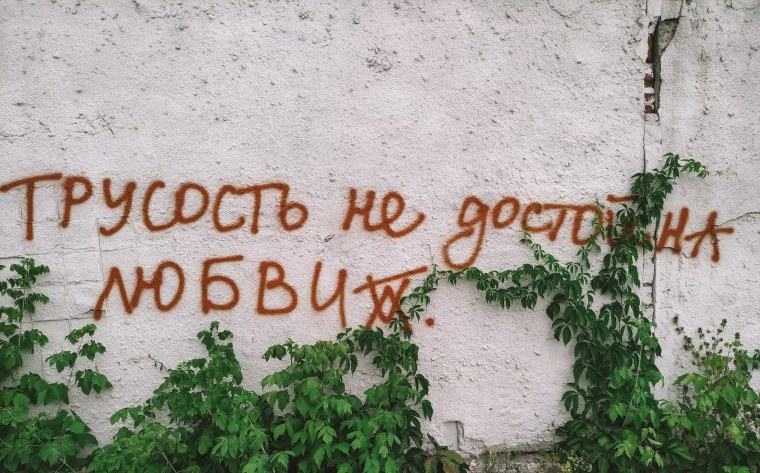 Трусость не достойна
любви.